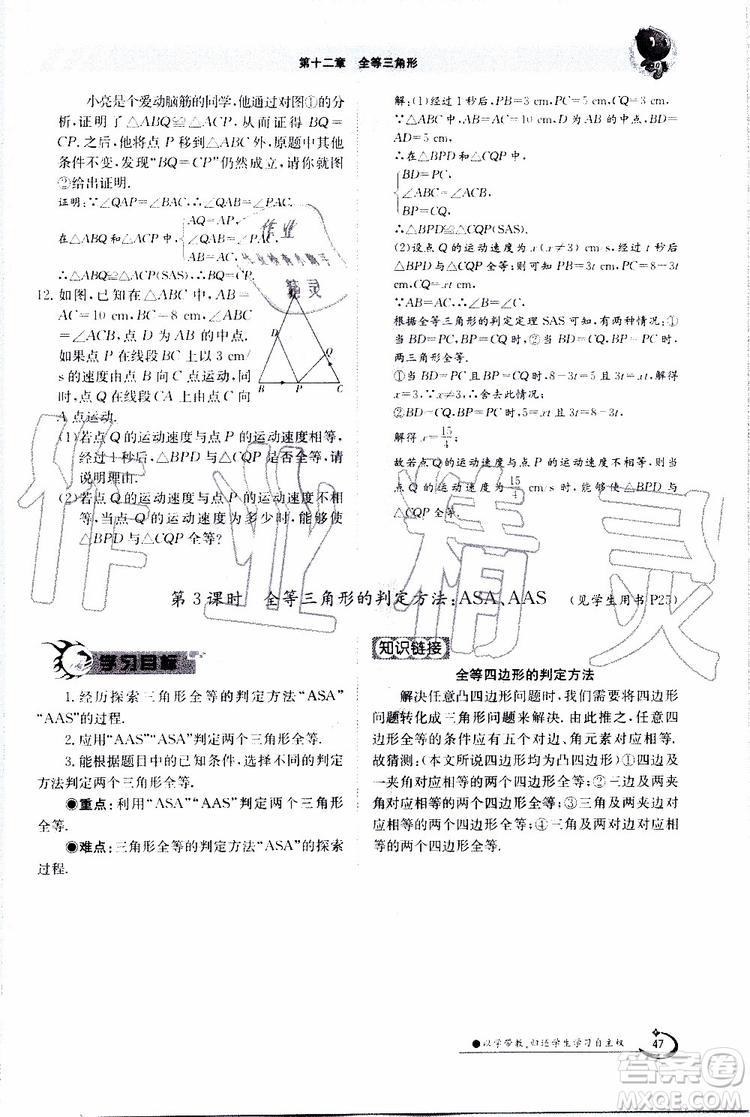 第十二章　全等三角形
小亮是个爱动脑筋的同学,他通过对图①的分
析,证明了△ABQ≌△ACP,从而证得BQ=
CP.之后,他将点P移到△ABC之外,原题中其他
条件不变,发现“BQ=CP”仍然成立,请你就图
②给出证明.
证明:∵∠QAP=∠BAC,∴∠QAB=∠PAC.
在△ABQ和△ACP中,
AQ=AP,
∠QAB=∠PAC,
AB=AC,
∴△ABQ≌△ACP(SAS),∴BQ=CP.
12. 如图,已知△ABC中,AB=
AC=10 cm,BC=8
cm,点D为AB的中点.
如果点P在线段BC上以3 cm/
s的速度由点B向C点运动,同
时,点Q在线段CA上由点C向
A点运动.
D
Q
B
P
C
(1)若点Q的运动速度与点P的运动速度相等,
经过1秒后,△BPD与△CQP是否全等?请
说明理由.
(2)若点Q的运动速度与点P的运动速度不相
等,当点Q的运动速度为多少时,能够使
△BPD与△CQP全等?
解:(1)经过1秒后,PB=3 cm,PC=5 cm,CQ=3 cm.
∵△ABC中,AB=AC,∴∠B=∠C,且BD=
AD=5 cm.
∴在△BPD和△CQP中,
BD=PC,
∠ABC=∠ACB,
BP=CQ,
∴△BPD≌△CQP(SAS).
(2)设点Q的运动速度为x(x≠3) cm/s,经过t秒后
△BPD与△CQP全等,则BP=3t cm,PC=8-3t
cm,CQ=xt cm.
∵AB=AC,
∴∠B=∠C.
根据全等三角形的判定定理SAS可知,有两种情况:①
当BD=PC,BP=CQ时,②当BD=CQ,BP=PC时,
两三角形全等.
①当BD=PC且BP=CQ时,8-3t=5且3t=xt,解得
x=3,∵x≠3,∴舍去此情况;
②BD=CQ,BP=PC时,5=xt且3t=8-3t,
解得x=15/4;
故若点Q的运动速度与点P的运动速度不相等,则当
点Q的运动速度为15/4 cm/s时,能够使△BPD与
△CQP全等.
第3课时　全等三角形的判定方法:ASA、AAS　(见学生用书P25)
学习目标
1.经历探索三角形全等的判定方法“ASA”
“AAS”的过程.
2.应用“ASA”“AAS”判定两个三角形全等.
3.能根据题目中的已知条件,选择适当的判定
方法判定两个三角形全等.
●重点:利用“ASA”“AAS”判定两个三角形
全等.
●难点:三角形全等的判定方法“ASA”的探索
过程.
知识链接
全等四边形的判定方法
解决任意凸四边形问题时,我们需将四边形
问题转化成三角形问题来解决.由此推出,任意四
边形全等的条件应有五个对边、角元素对应相等.
故猜测:(本文所说四边形均为凸四边形)①四边及
一夹角对应相等的两个四边形全等;②三边及两夹
角对应相等的两个四边形全等;③三边及两对角对
应相等的两个四边形全等;④三角及两对边对应相
等的两个四边形全等.
●以学带教,归还学生学习自主权
47
作业精灵
答案圈